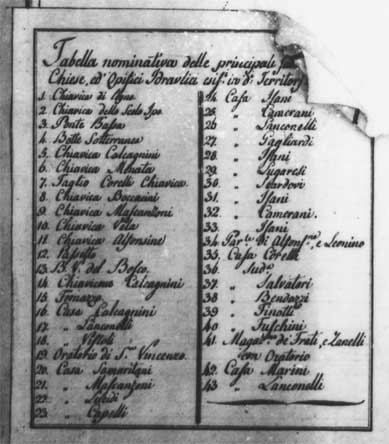 Tabella nominativa delle principali
Chiese, ed Opifici Idraulici esis in di Territor
1. Chiavica di Agno
2. Chiavica dello Scolo
3. Ponte Bassa
4. Botte Sotterranea
5. Chiavica Calcagnini
6. Chiavica Menata
7. Taglio Corelli Chiavica
8. Chiavica Boccacini
9. Chiavica Mascanzoni
10. Chiavica Vela
11. Chiavica Alfonsine
12. Passetto
13. B. V. del Bosco
14. Chiavicone Calcagnini
15. Fornazzo
16. Casa Calcagnini
17. " Lanconelli
18. "
19. Oratorio di S. Vincenzo
20. Casa Samaritani
21. " Mascanzoni
22. "
23. " Capelli
24. Casa Isani
25. " Camerani
26. " Lanconelli
27. " Gagliardi
28. " Isani
29. " Lugaresi
30. "
31. " Isani
32. " Camerani
33. " Isani
34. di Alfon e Leonino
35. Casa Corelli
36. "
37. " Salvatori
38. " Bendazzi
39. " Pinotti
40. " Fuschini
41. de Frati, e Zanelli
con Oratorio
42. Casa Marini
43. " Lanconelli